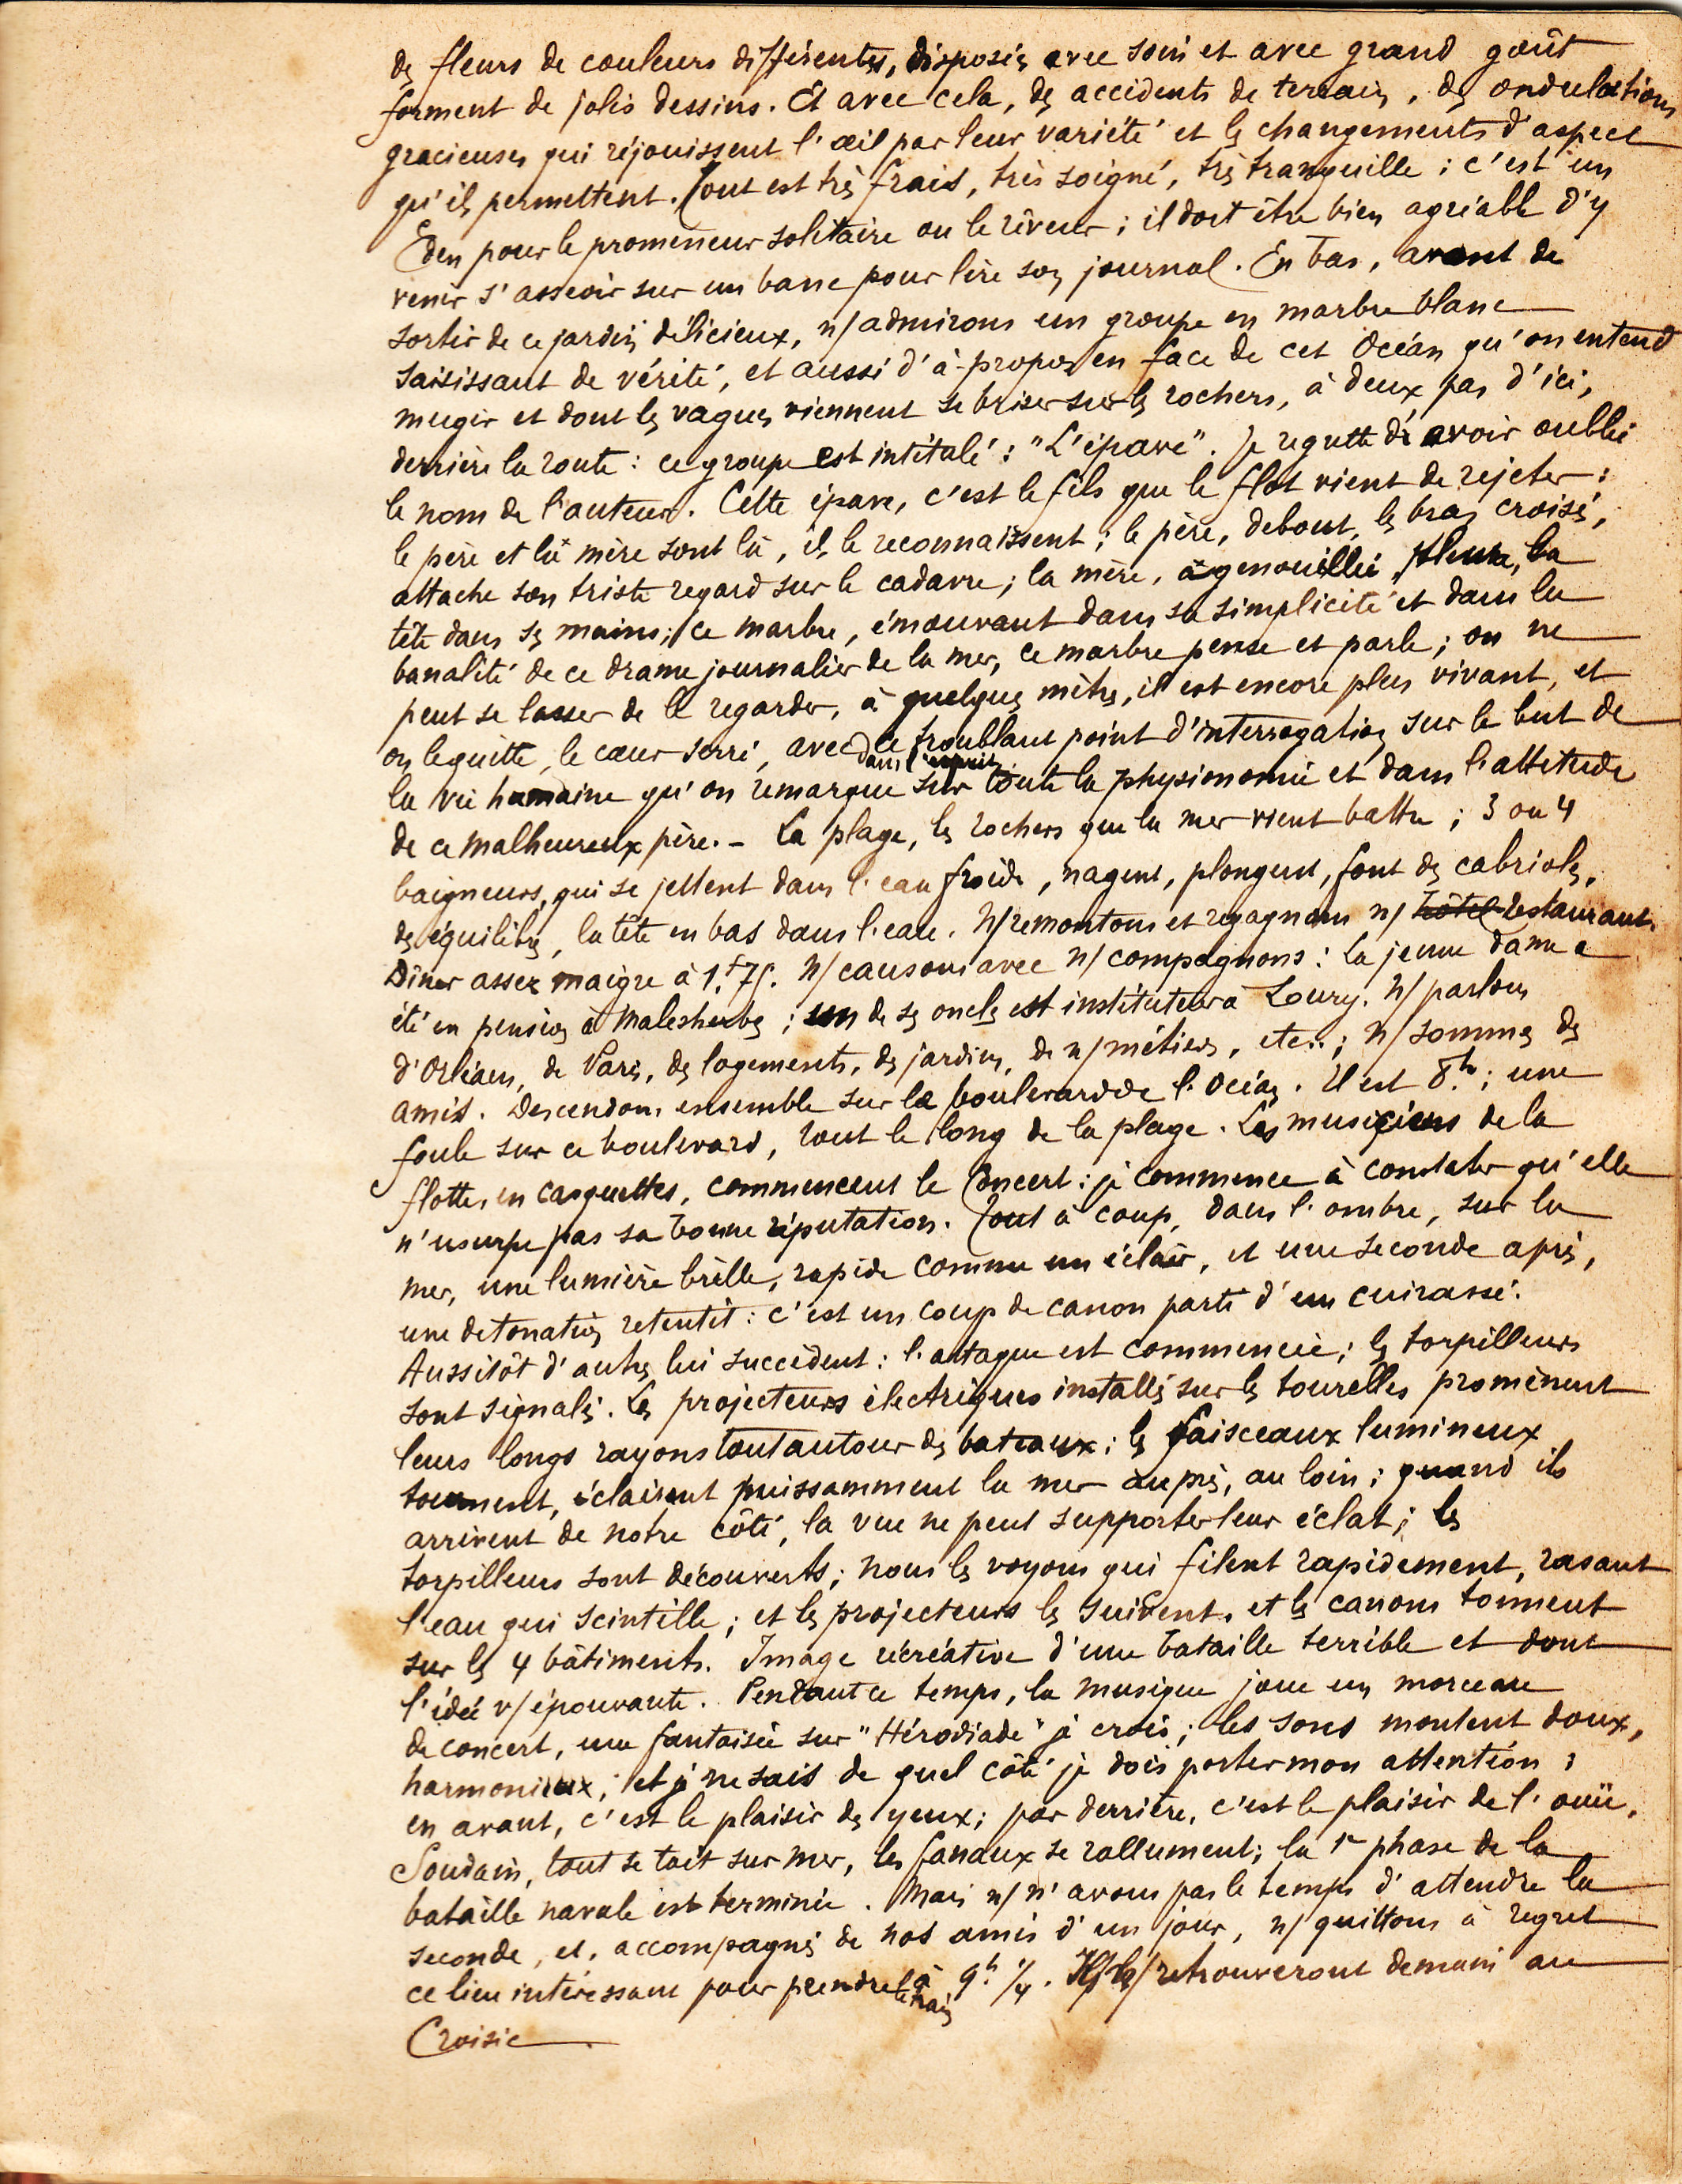 des fleurs de couleurs différentes, disposées avec soin et avec grand goût
forment de jolis dessins. Et avec cela, des accidents de terrain, des ondulations
gracieuses qui réjouissent l'œil par leur variété et les changements d'aspect
qu'ils permettent. Tout est très frais, très soigné, très tranquille ; c'est un
Eden pour le promeneur solitaire ou le rêveur ; il doit être bien agréable d'y
venir s'asseoir sur un banc pour lire son journal. En bas, avant de
sortir de ce jardin délicieux, n/ admirons un groupe en marbre blanc
saisissant de vérité, et aussi d'à-propos en face de cet Océan qu'on entend
mugir et dont les vagues viennent se briser sur les rochers, à deux pas d'ici,
derrière la route : ce groupe est intitulé : "L'épave". Je regrette d'avoir oublié
le nom de l'auteur. Cette épave, c'est le fils que le flot vient de rejeter :
le père et la mère sont là, ils le reconnaissent ; le père, debout, les bras croisés,
attache son triste regard sur le cadavre ; la mère, agenouillée, pleure, la
tête dans ses mains ; ce marbre, émouvant dans sa simplicité et dans la
banalité de ce drame journalier de la mer, ce marbre pense et parle ; on ne
peut se lasser de le regarder, à quelques mètres, il est encore plus vivant, et
on le quitte, le cœur serré, avec dans l'esprit ce troublant point d'interrogation sur le but de
la vie humaine qu'on remarque sur toute la physionomie et dans l'attitude
de ce malheureux père. - La plage, les rochers que la mer vient battre ; 3 ou 4
baigneurs, qui se jettent dans l'eau froide, nagent, plongent, font des cabrioles,
des équilibres, la tête en bas dans l'eau. N/ remontons et regagnons n/ hôtel-restaurant.
Dîner assez maigre à 1f.75. N/ causons avec n/ compagnons : la jeune dame a
été en pension à Malesherbes ; un de ses oncles est instituteur à Loury. N/ parlons
d'Orléans, de Paris, des logements, des jardins, de n/ métiers, etc.. ; n/ sommes des
amis. Descendons ensemble sur le boulevard de l'Océan. Il est 8h ; une
foule sur ce boulevard, tout le long de la plage. Les musiciens de la
flotte, en casquettes, commencent le Concert : je commence à constater qu'elle
n'usurpe pas sa bonne réputation. Tout à coup, dans l'ombre, sur la
mer, une lumière brille, rapide comme un éclair, et une seconde après,
une detonation retentit : c'est un coup de canon parti d'un cuirassé.
Aussitôt d'autres lui succèdent : l'attaque est commencée ; les torpilleurs
sont signalés. Les projecteurs électriques installés sur les tourelles promènent
leurs longs rayons tout autour des bateaux ; les faisceaux lumineux
tournent, éclairent puissamment la mer auprès, au loin ; quand ils
arrivent de notre côté, la vue ne peut supporter leur éclat ; les
torpilleurs sont découverts ; nous les voyons qui filent rapidement, rasant
l'eau qui scintille ; et les projecteurs les suivent, et les canons tonnent
sur les 4 bâtiments. Image récréative d'une bataille terrible et dont
l'idée v/ épouvante. Pendant ce temps, la musique joue un morceau
de concert, une fantaisie sur "Hérodiade" je crois ; les sons montent doux,
harmonieux ; et je ne sais de quel côté je dois porter mon attention :
en avant, c'est le plaisir des yeux ; par derrière, c'est le plaisir de l'ouïe.
Soudain, tout se tait sur mer, les fanaux se rallument ; la 1re phase de la
bataille navale est terminée. Mais n/ n'avons pas le temps d'attendre la
seconde, et, accompagnés de nos amis d'un jour, n/ quittons à regret
ce lieu intéressant pour prendre le train à 9h 1/4. Ils n/ retrouveront demain au
Croisic.